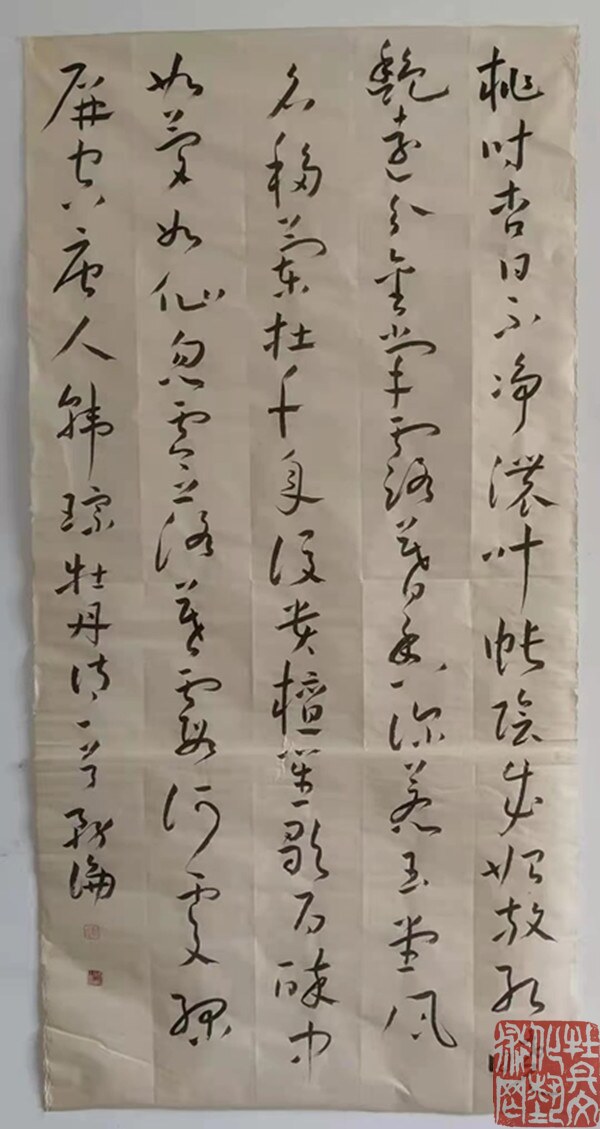 桃时杏日不净濃叶帐陰成始放红
艳远分金掌露暮香深惹玉堂风
名移蘭杜千年後贵檀笙歌百醉中
如梦如仙忽零落暮霞何处绿
屏空 唐人韩琮牡丹诗一首
牡丹文化艺术网